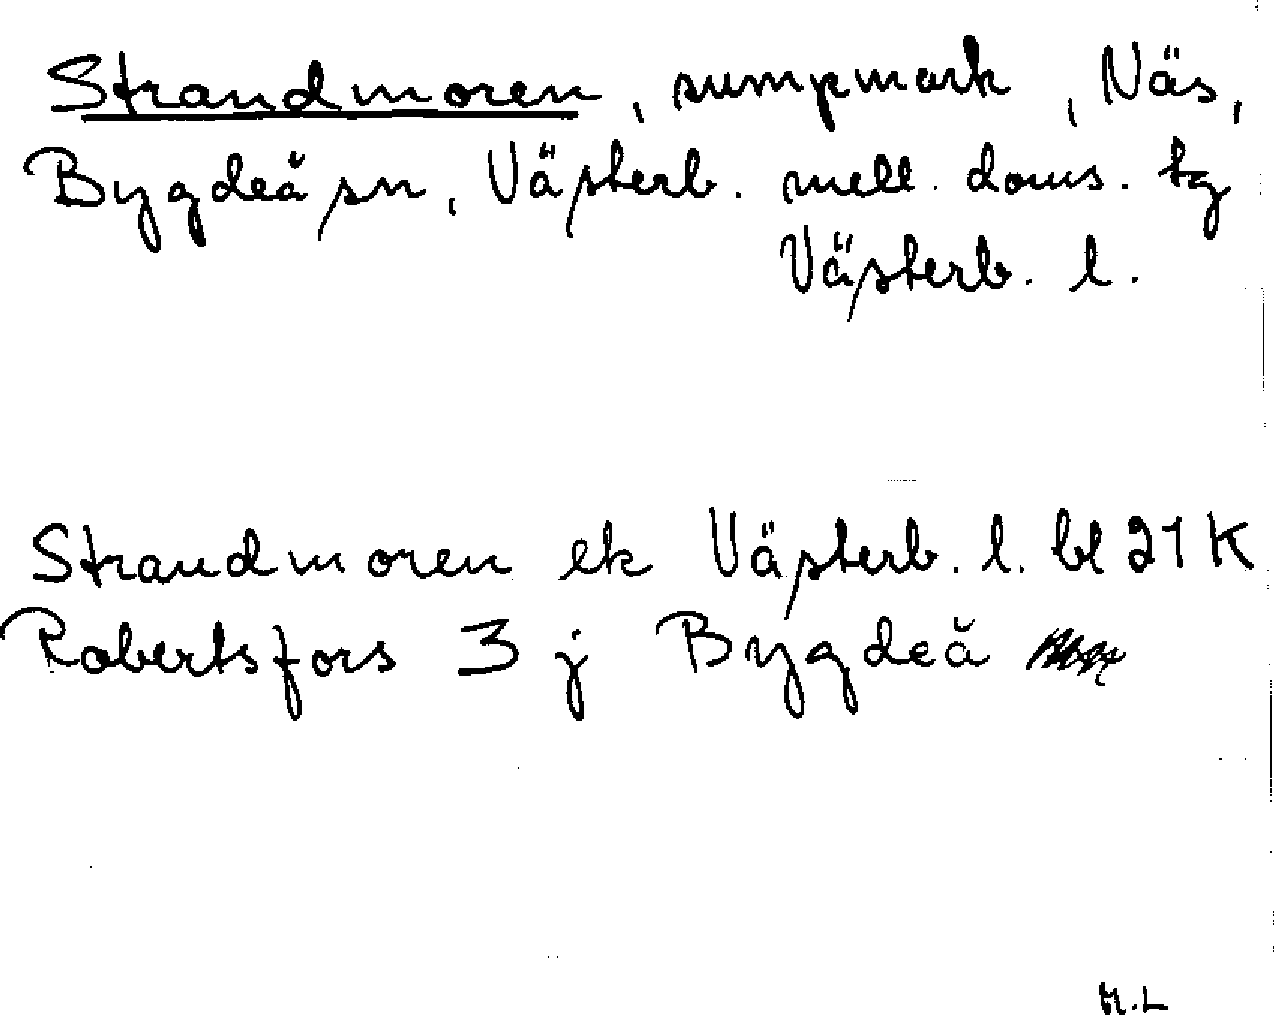 Strandmoren, sumpmark, Näs,
Bygdeå sn, Västerb. mell. doms. tg
Västerb. l.
Strandmoren ek Västerb. l. bl 21 K
Robertsfors 3 j Bygdeå
H.L